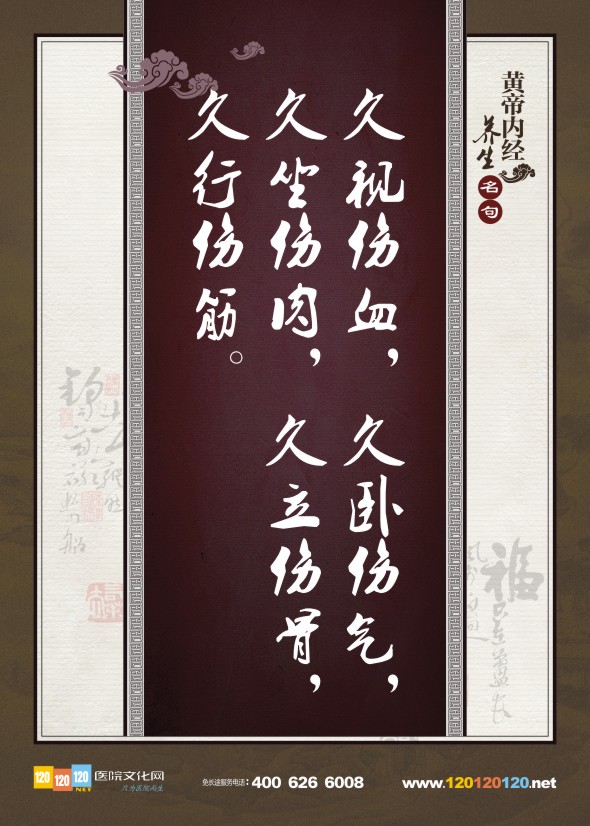 黄帝内经
养生
名句
久视伤血，久卧伤气，
久坐伤肉，久立伤骨，
久行伤筋。
福
120 120 120
.NET
医院文化网
只为医院而生
免长途服务电话：400 626 6008
www.120120120.net